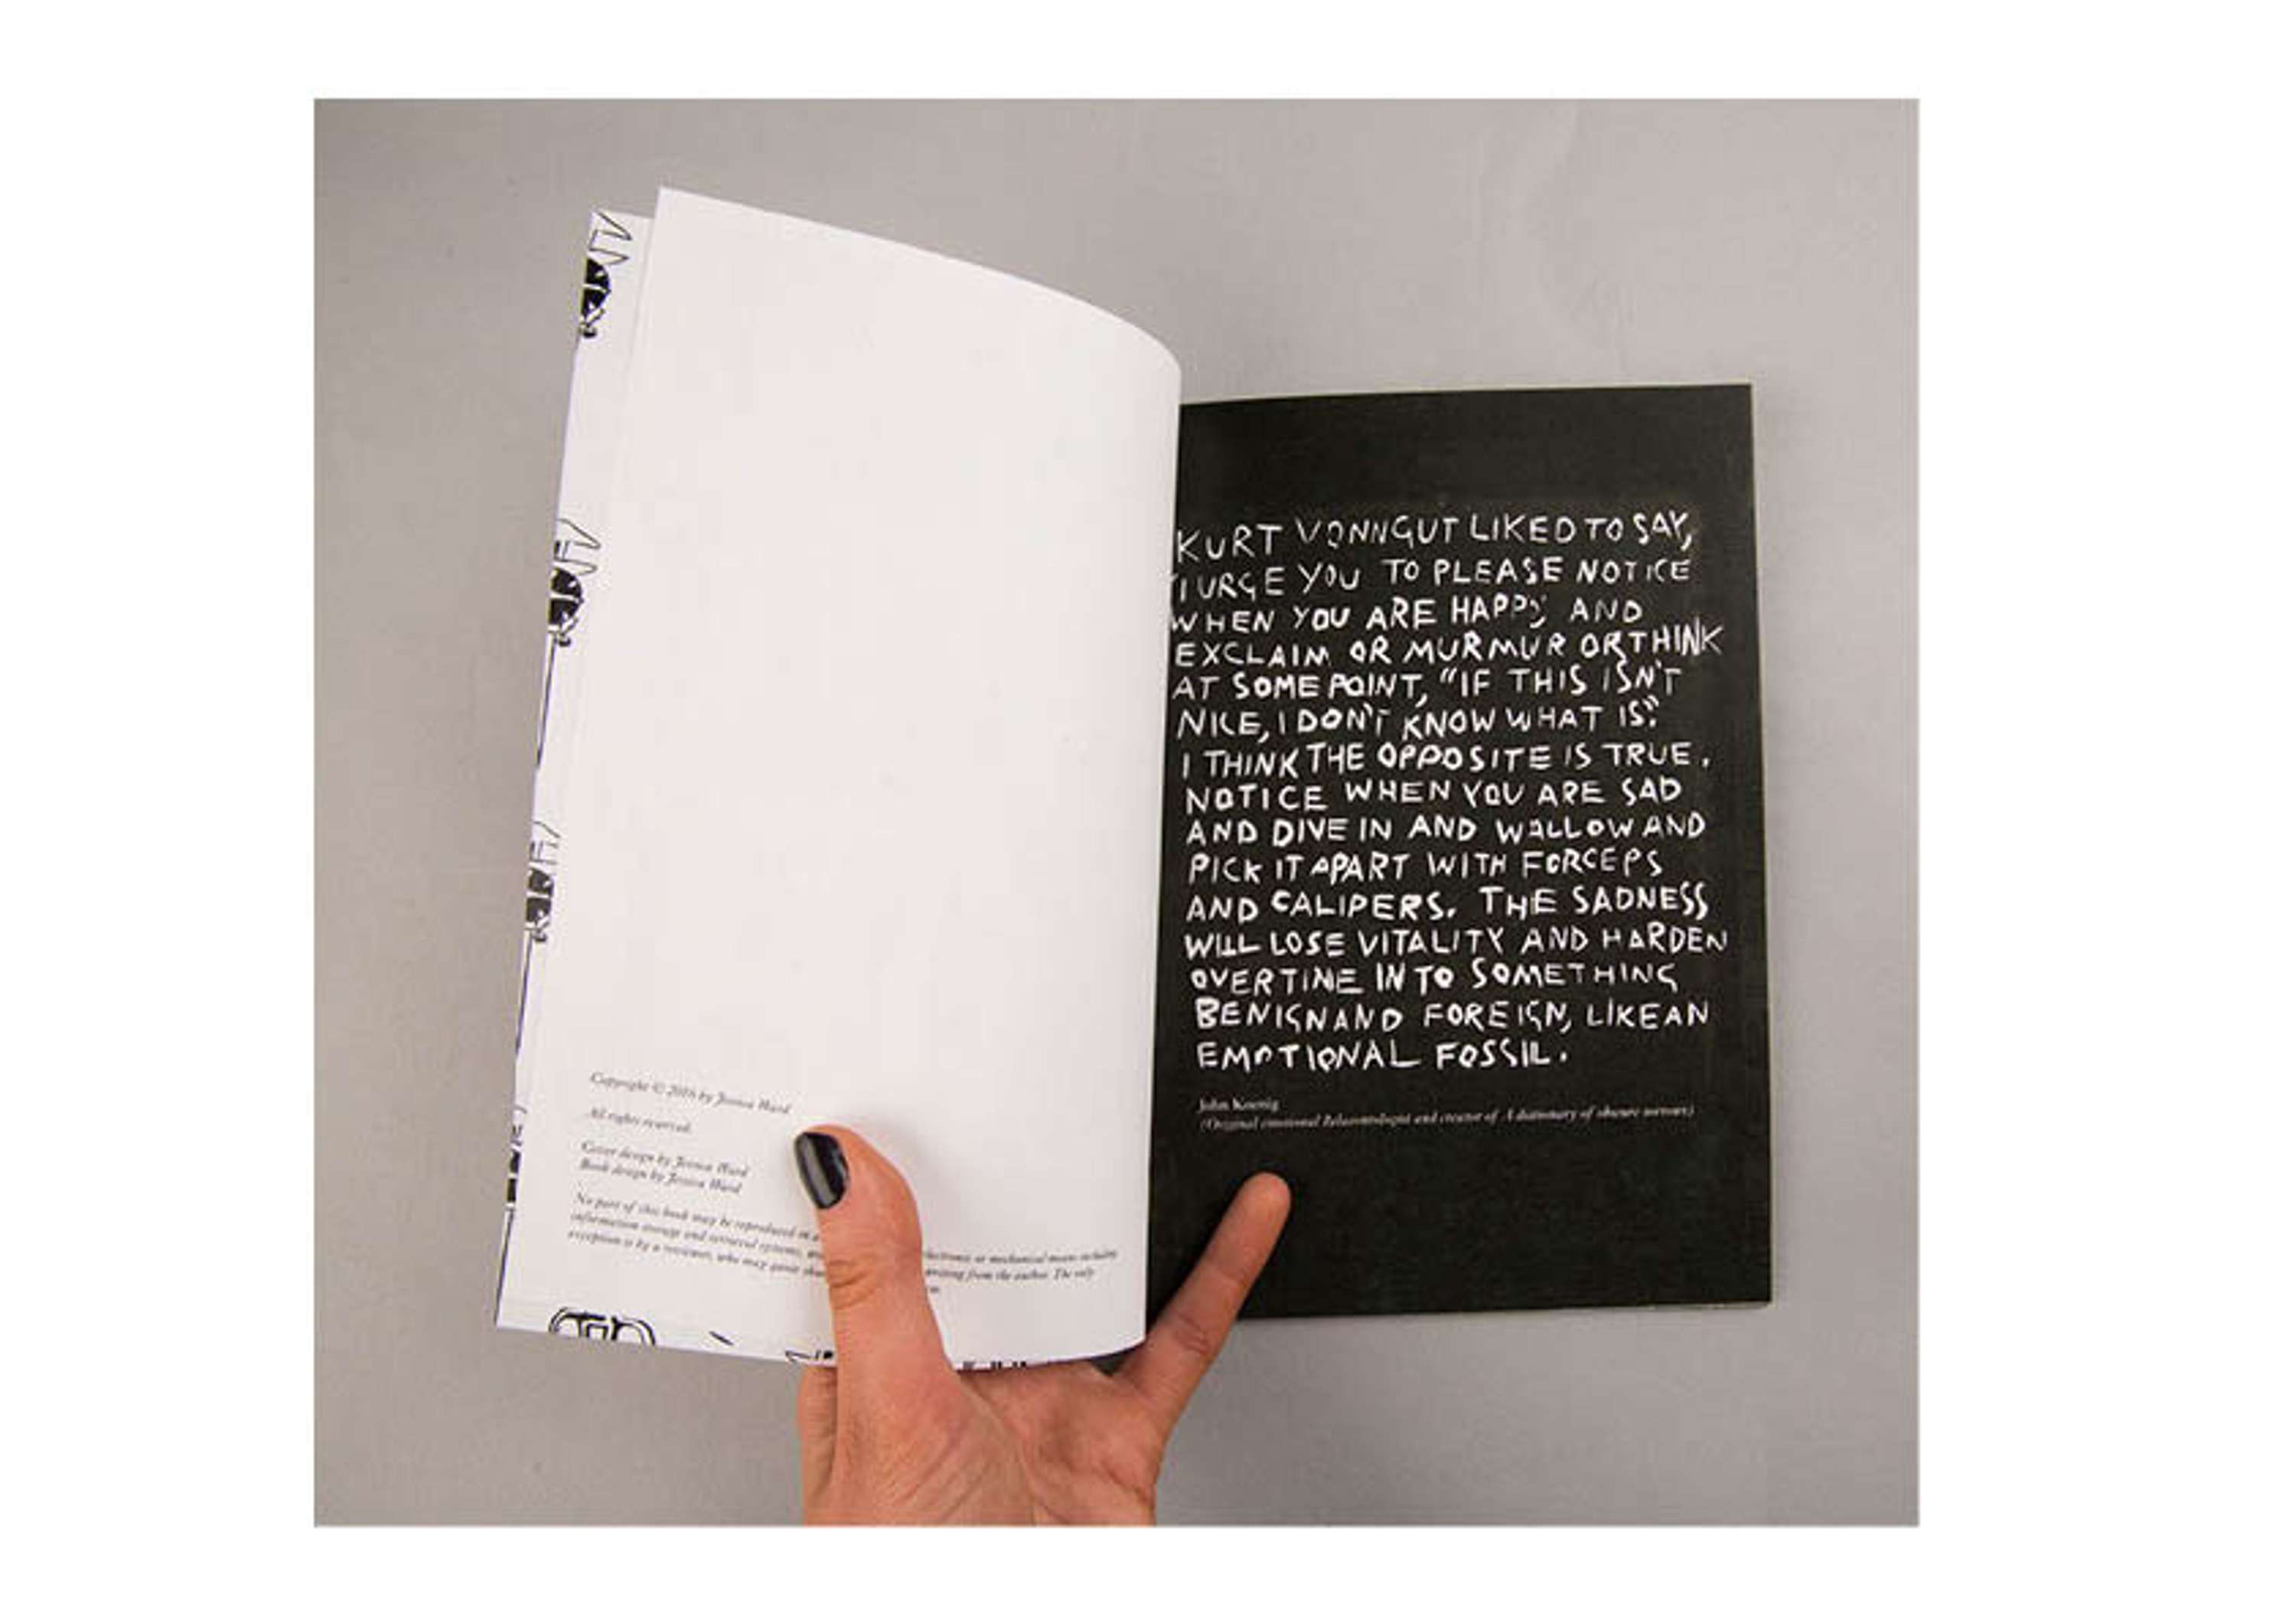 Copyright © 2016 by Jessica Ward
All rights reserved.
Cover design by Jessica Ward
Book design by Jessica Ward
No part of this book may be reproduced in electronic or mechanical means including
information storage and retrieval systems, writing from the author. The only
exception is by a reviewer, who may quote
KURT VONNGUT LIKED TO SAY,
'I URGE YOU TO PLEASE NOTICE
WHEN YOU ARE HAPPY, AND
EXCLAIM OR MURMUR OR THINK
AT SOME POINT, "IF THIS ISN'T
NICE, I DON'T KNOW WHAT IS".
I THINK THE OPPOSITE IS TRUE.
NOTICE WHEN YOU ARE SAD
AND DIVE IN AND WALLOW AND
PICK IT APART WITH FORCEPS
AND CALIPERS. THE SADNESS
WILL LOSE VITALITY AND HARDEN
OVERTIME INTO SOMETHING
BENIGN AND FOREIGN, LIKE AN
EMOTIONAL FOSSIL.
John Koenig
(Original emotional Palaeontologist and creator of A dictionary of obscure sorrows)